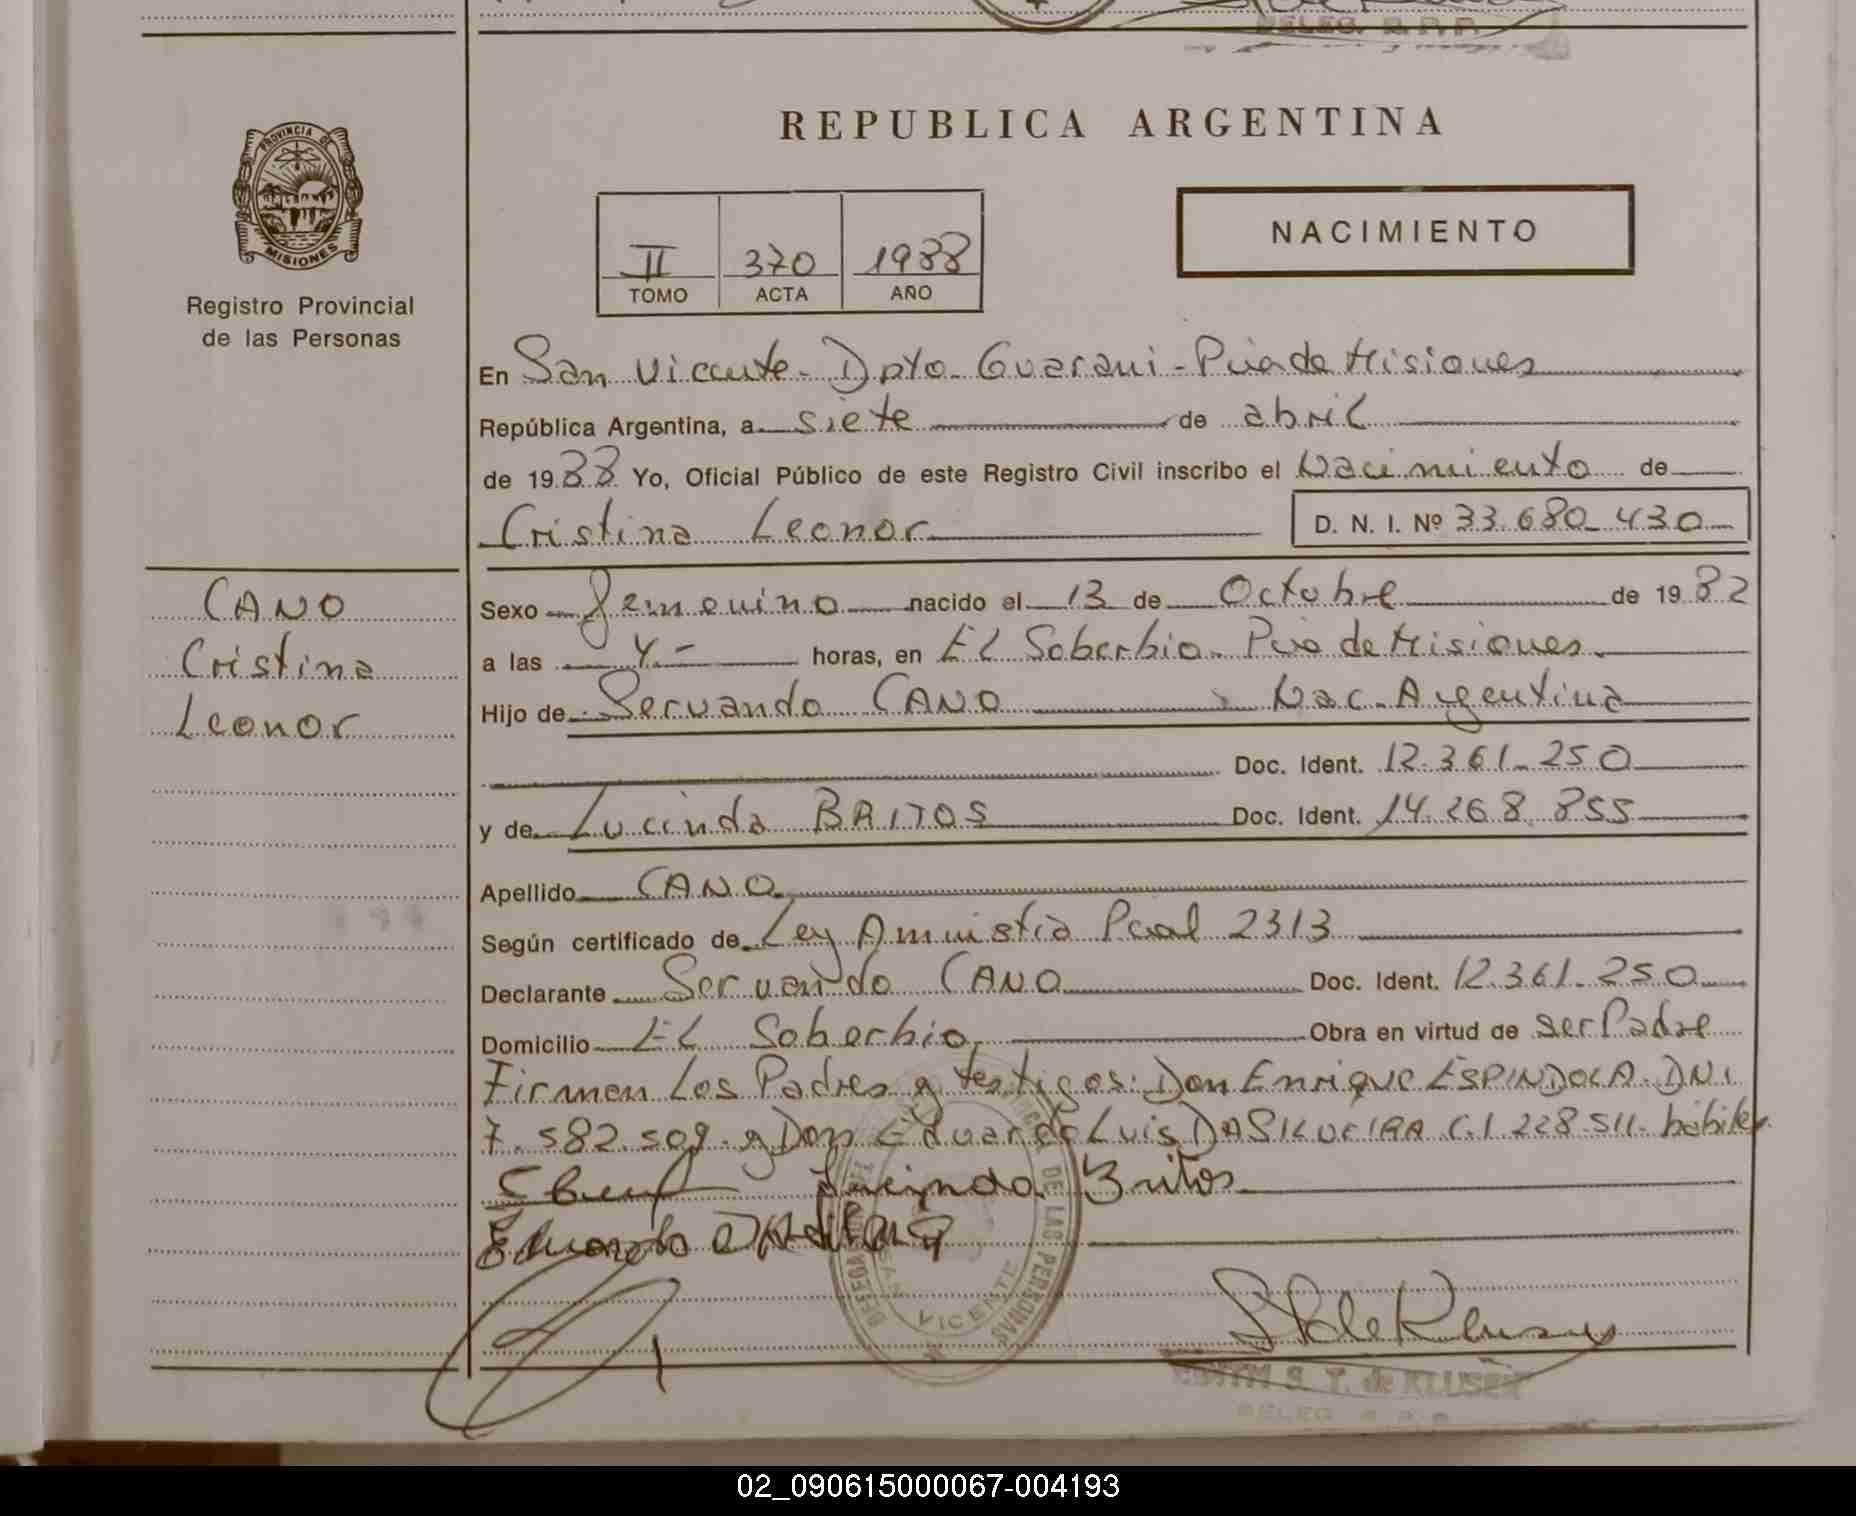 DELEG. R. P. P.
PROVINCIA DE
MISIONES
Registro Provincial
de las Personas
REPUBLICA ARGENTINA
II 370 1988
TOMO ACTA AÑO
NACIMIENTO
En San Vicente - Dpto. Guarani - Pcia de Misiones
República Argentina, a siete de abril
de 1988 Yo, Oficial Público de este Registro Civil inscribo el Nacimiento de
Cristina Leonor D. N. I. Nº 33.680.430
CANO
Cristina
Leonor
Sexo Femenino nacido el 13 de Octubre de 1982
a las 4.- horas, en EL Soberbio - Pcia de Misiones.
Hijo de Servando CANO Nac. Argentina
Doc. Ident. 12.361.250
y de Lucinda BRITOS Doc. Ident. 14.268.855
Apellido CANO
Según certificado de Ley Amnistia Pcial 2313
Declarante Servando CANO Doc. Ident. 12.361.250
Domicilio EL Soberbio Obra en virtud de ser Padre
Firman Los Padres y testigos: Don Enrique ESPINDOLA. DNI.
7.582.509. y Don Eduardo Luis DASILVEIRA C.I. 228.511. hábiles
Lucinda Britos
Eduardo
DE LAS PERSONAS
SAN VICENTE
S. T. de KLUSEN
DELEG. R. P. P.
02_090615000067-004193